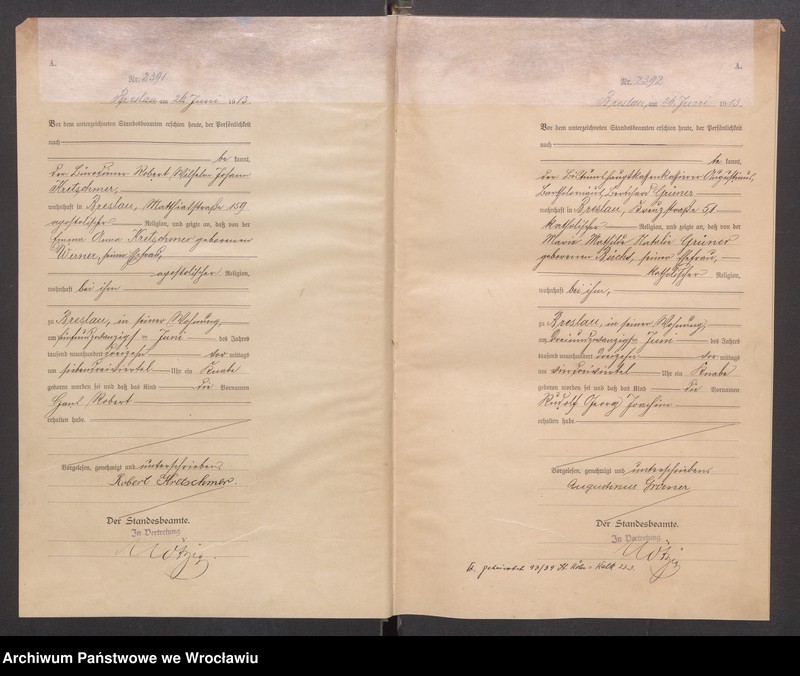 A.
Nr. 2391
Breslau, am 26. Juni 1913.
Vor dem unterzeichneten Standesbeamten erschien heute, der Persönlichkeit
nach
be kannt,
der Bürodiener Robert Wilhelm Johann
Kretschmer,
wohnhaft in Breslau, Matthiasstraße 159
apostolischer Religion, und zeigte an, daß von der
Emma Anna Kretschmer geborenen
Werner, seiner Ehefrau,
apostolischer Religion,
wohnhaft bei ihm
zu Breslau, in seiner Wohnung,
am fünfundzwanzigsten Juni des Jahres
tausend neunhundert dreizehn vor mittags
um sieben dreiviertel Uhr ein Knabe
geboren worden sei und daß das Kind die Vornamen
Hans Robert
erhalten habe.
Vorgelesen, genehmigt und unterschrieben
Robert Kretschmer.
Der Standesbeamte.
In Vertretung
A.
Nr. 2392
Breslau, am 26. Juni 1913.
Vor dem unterzeichneten Standesbeamten erschien heute, der Persönlichkeit
nach
be kannt,
der Bistumshauptkassenkassierer Augustinus,
Bartholomäus, Bernhard Grüner
wohnhaft in Breslau, Kreuzstraße 51
katholischer Religion, und zeigte an, daß von der
Maria Mathilde Natalie Grüner
geborenen seiner Ehefrau,
katholischer Religion,
wohnhaft bei ihm,
zu Breslau, in seiner Wohnung,
am dreiundzwanzigsten Juni des Jahres
tausend neunhundert dreizehn vor mittags
um vier dreiviertel Uhr ein Knabe
geboren worden sei und daß das Kind die Vornamen
Rudolf Georg Joachim
erhalten habe.
Vorgelesen, genehmigt und unterschrieben
Augustinus Grüner
Der Standesbeamte.
In Vertretung
geheiratet 93/39 Köln - Kalk
Archiwum Państwowe we Wrocławiu